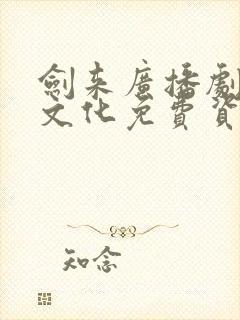 劍來廣播劇
文化免費資
知念